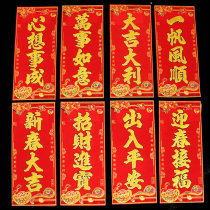 心想事成
萬事如意
大吉大利
一帆風順
新春大吉
招財進寶
出入平安
迎春接福